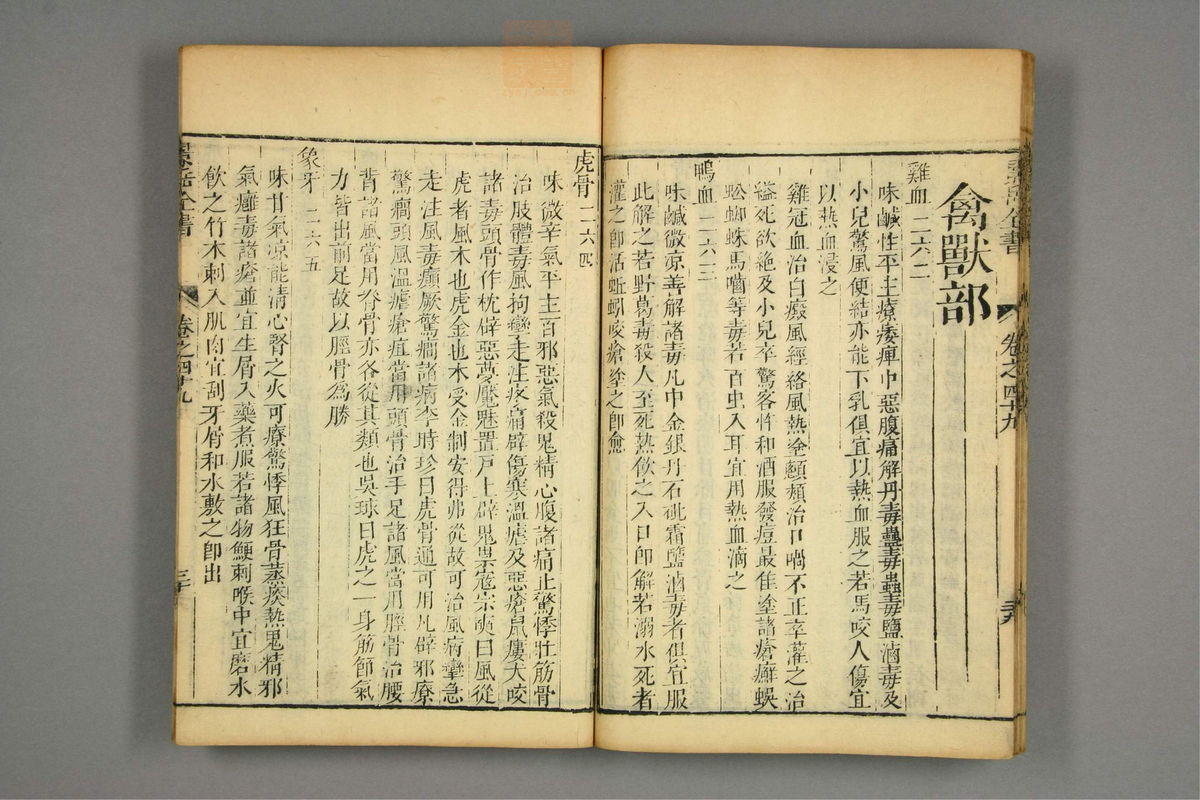 景岳全書 卷之四十九
禽獸部
雞血 二六二
味鹹性平主療痿痺中惡腹痛解丹毒蠱毒蟲毒鹽滷毒及
小兒驚風便結亦能下乳俱宜以熱血服之若馬咬人傷宜
以熱血浸之
雞冠血治白癜風經絡風熱塗顱頰治口喎不正卒灌之治
縊死欲絶及小兒卒驚客忤和酒服發痘最佳塗諸瘡癬蜈
蚣蜘蛛馬嚙等毒若百虫入耳宜用熱血滴之
鴨血 二六三
味鹹微涼善解諸毒凡中金銀丹石砒霜鹽滷毒者俱宜服
此解之若野葛毒殺人至死熱飲之入口即解若溺水死者
灌之即活蚯蚓咬瘡塗之即愈
虎骨 二六四
味微辛氣平主百邪惡氣殺鬼精心腹諸痛止驚悸壯筋骨
治肢體毒風拘攣走注疼痛辟傷寒溫瘧及惡瘡鼠瘻犬咬
諸毒頭骨作枕辟惡夢魘魅置戸上辟鬼祟寇宗奭曰風從
虎者風木也虎金也木受金制安得弗從故可治風病攣急
走注風毒癲厥驚癎諸病李時珍曰虎骨通可用凡辟邪療
驚癎頭風溫瘧瘡疽當用頭骨治手足諸風當用脛骨治腰
背諸風當用脊骨亦各從其類也吳球曰虎之一身筋節氣
力皆出前足故以脛骨為勝
象牙 二六五
味甘氣涼能清心腎之火可療驚悸風狂骨蒸痰熱鬼精邪
氣癰毒諸瘡並宜生屑入藥煮服若諸物鯁刺喉中宜磨水
飲之竹木刺入肌肉宜刮牙屑和水敷之即出
景岳全書 卷之四十九 三十